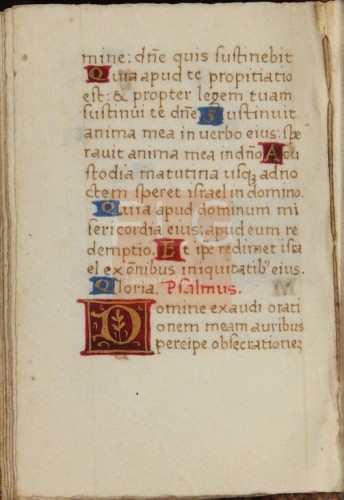 mine: dñe quis sustinebit
Quia apud te propitiatio
est: & propter legem tuam
sustinui te dñe. Sustinuit
anima mea in verbo eius: spe
ravit anima mea in dño. A cu
stodia matutina usq; ad no
ctem speret israel in domino.
Quia apud dominum mi
sericordia eius: apud eum re
demptio. Et ipe redimet isra
el ex oñibus iniquitatib' eius.
Gloria. Psalmus.
Domine exaudi orati
onem meam auribus
percipe obsecrationez